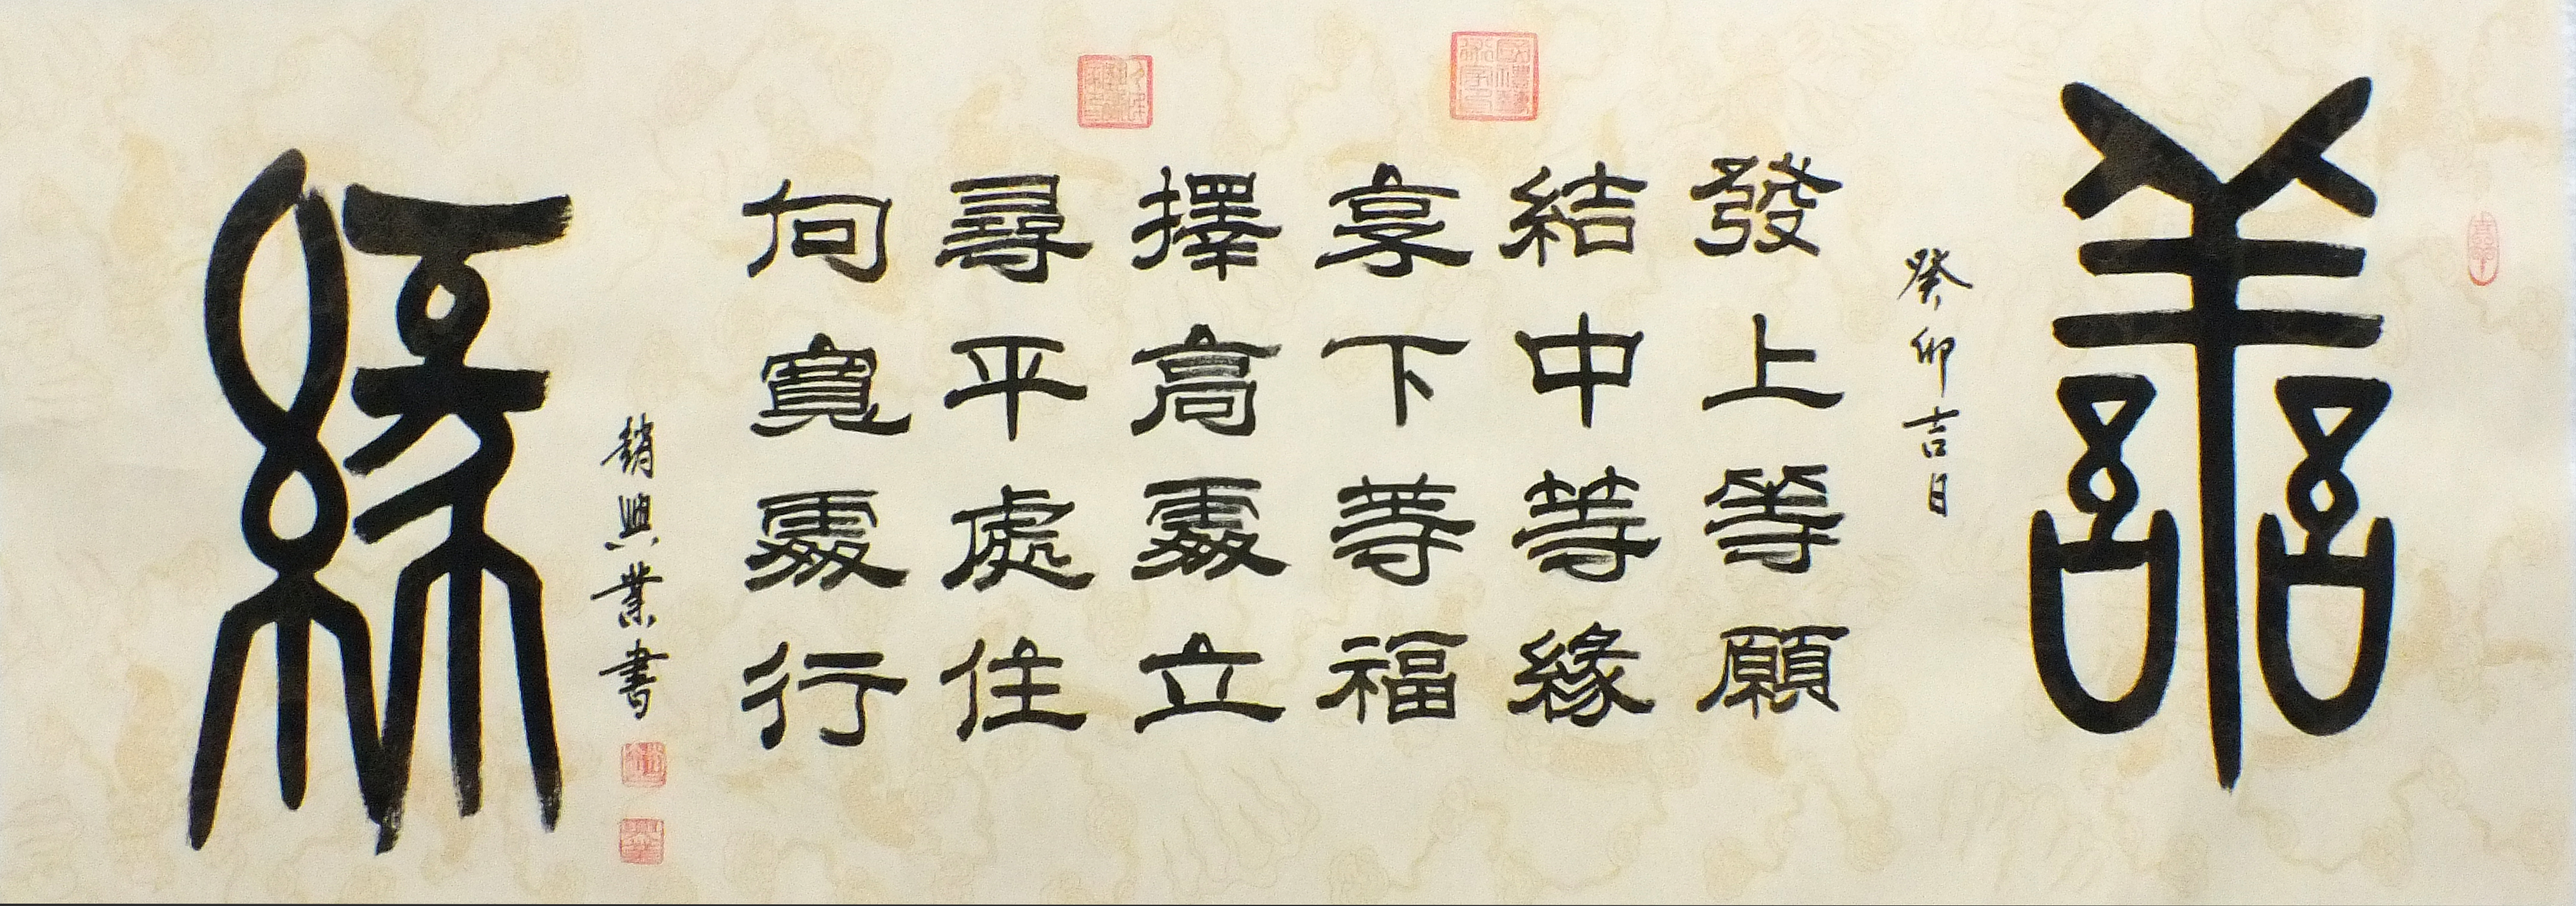 譱
癸卯吉日
發上等願
結中等緣
享下等福
擇高處立
尋平處住
向寬處行
趙興業書
緣